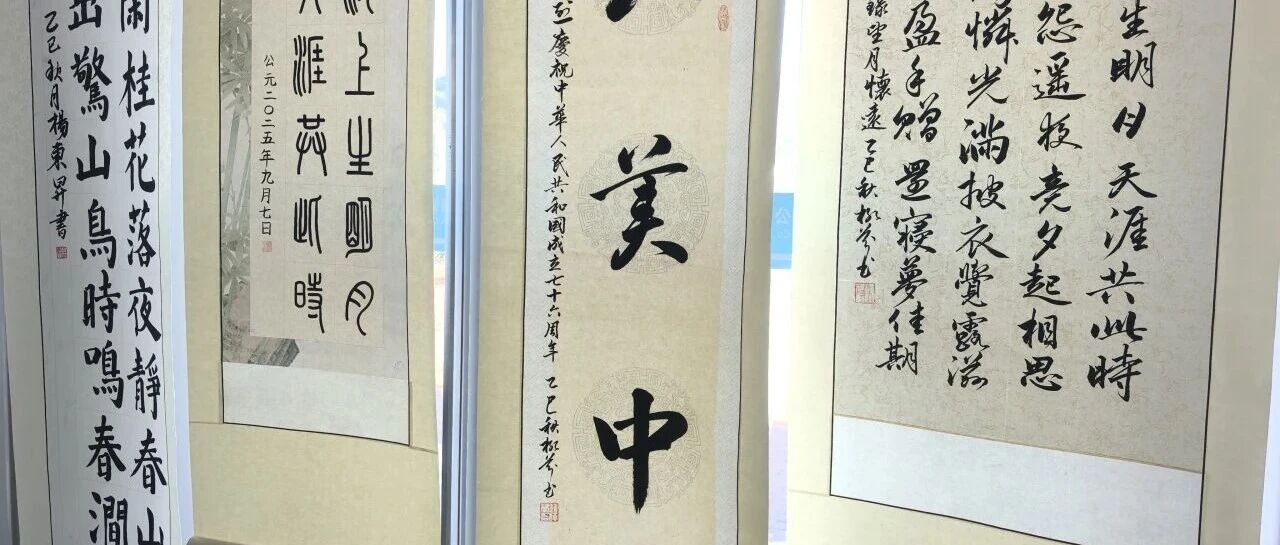 生明月天涯共此時
怨遥夜竟夕起相思
憐光满披衣覺露滋
盈手贈還寝夢佳期
錄望月懷遠 乙巳秋
美中
慶祝中華人民共和國成立七十六周年 乙巳秋
上生明月
涯共此時
公元二〇二五年九月七日
閑桂花落夜靜春山
出驚山鳥時鳴春澗
乙巳秋月楊東昇書